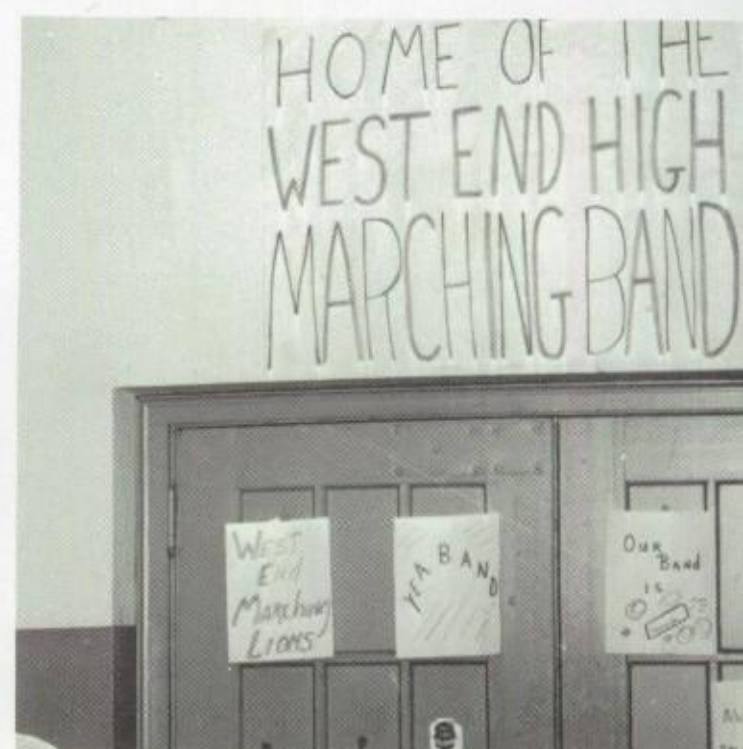 HOME OF THE
WEST END HIGH
MARCHING BAND
WEST
End
Marching
LIONS
YEA BAND
Our
Band
is